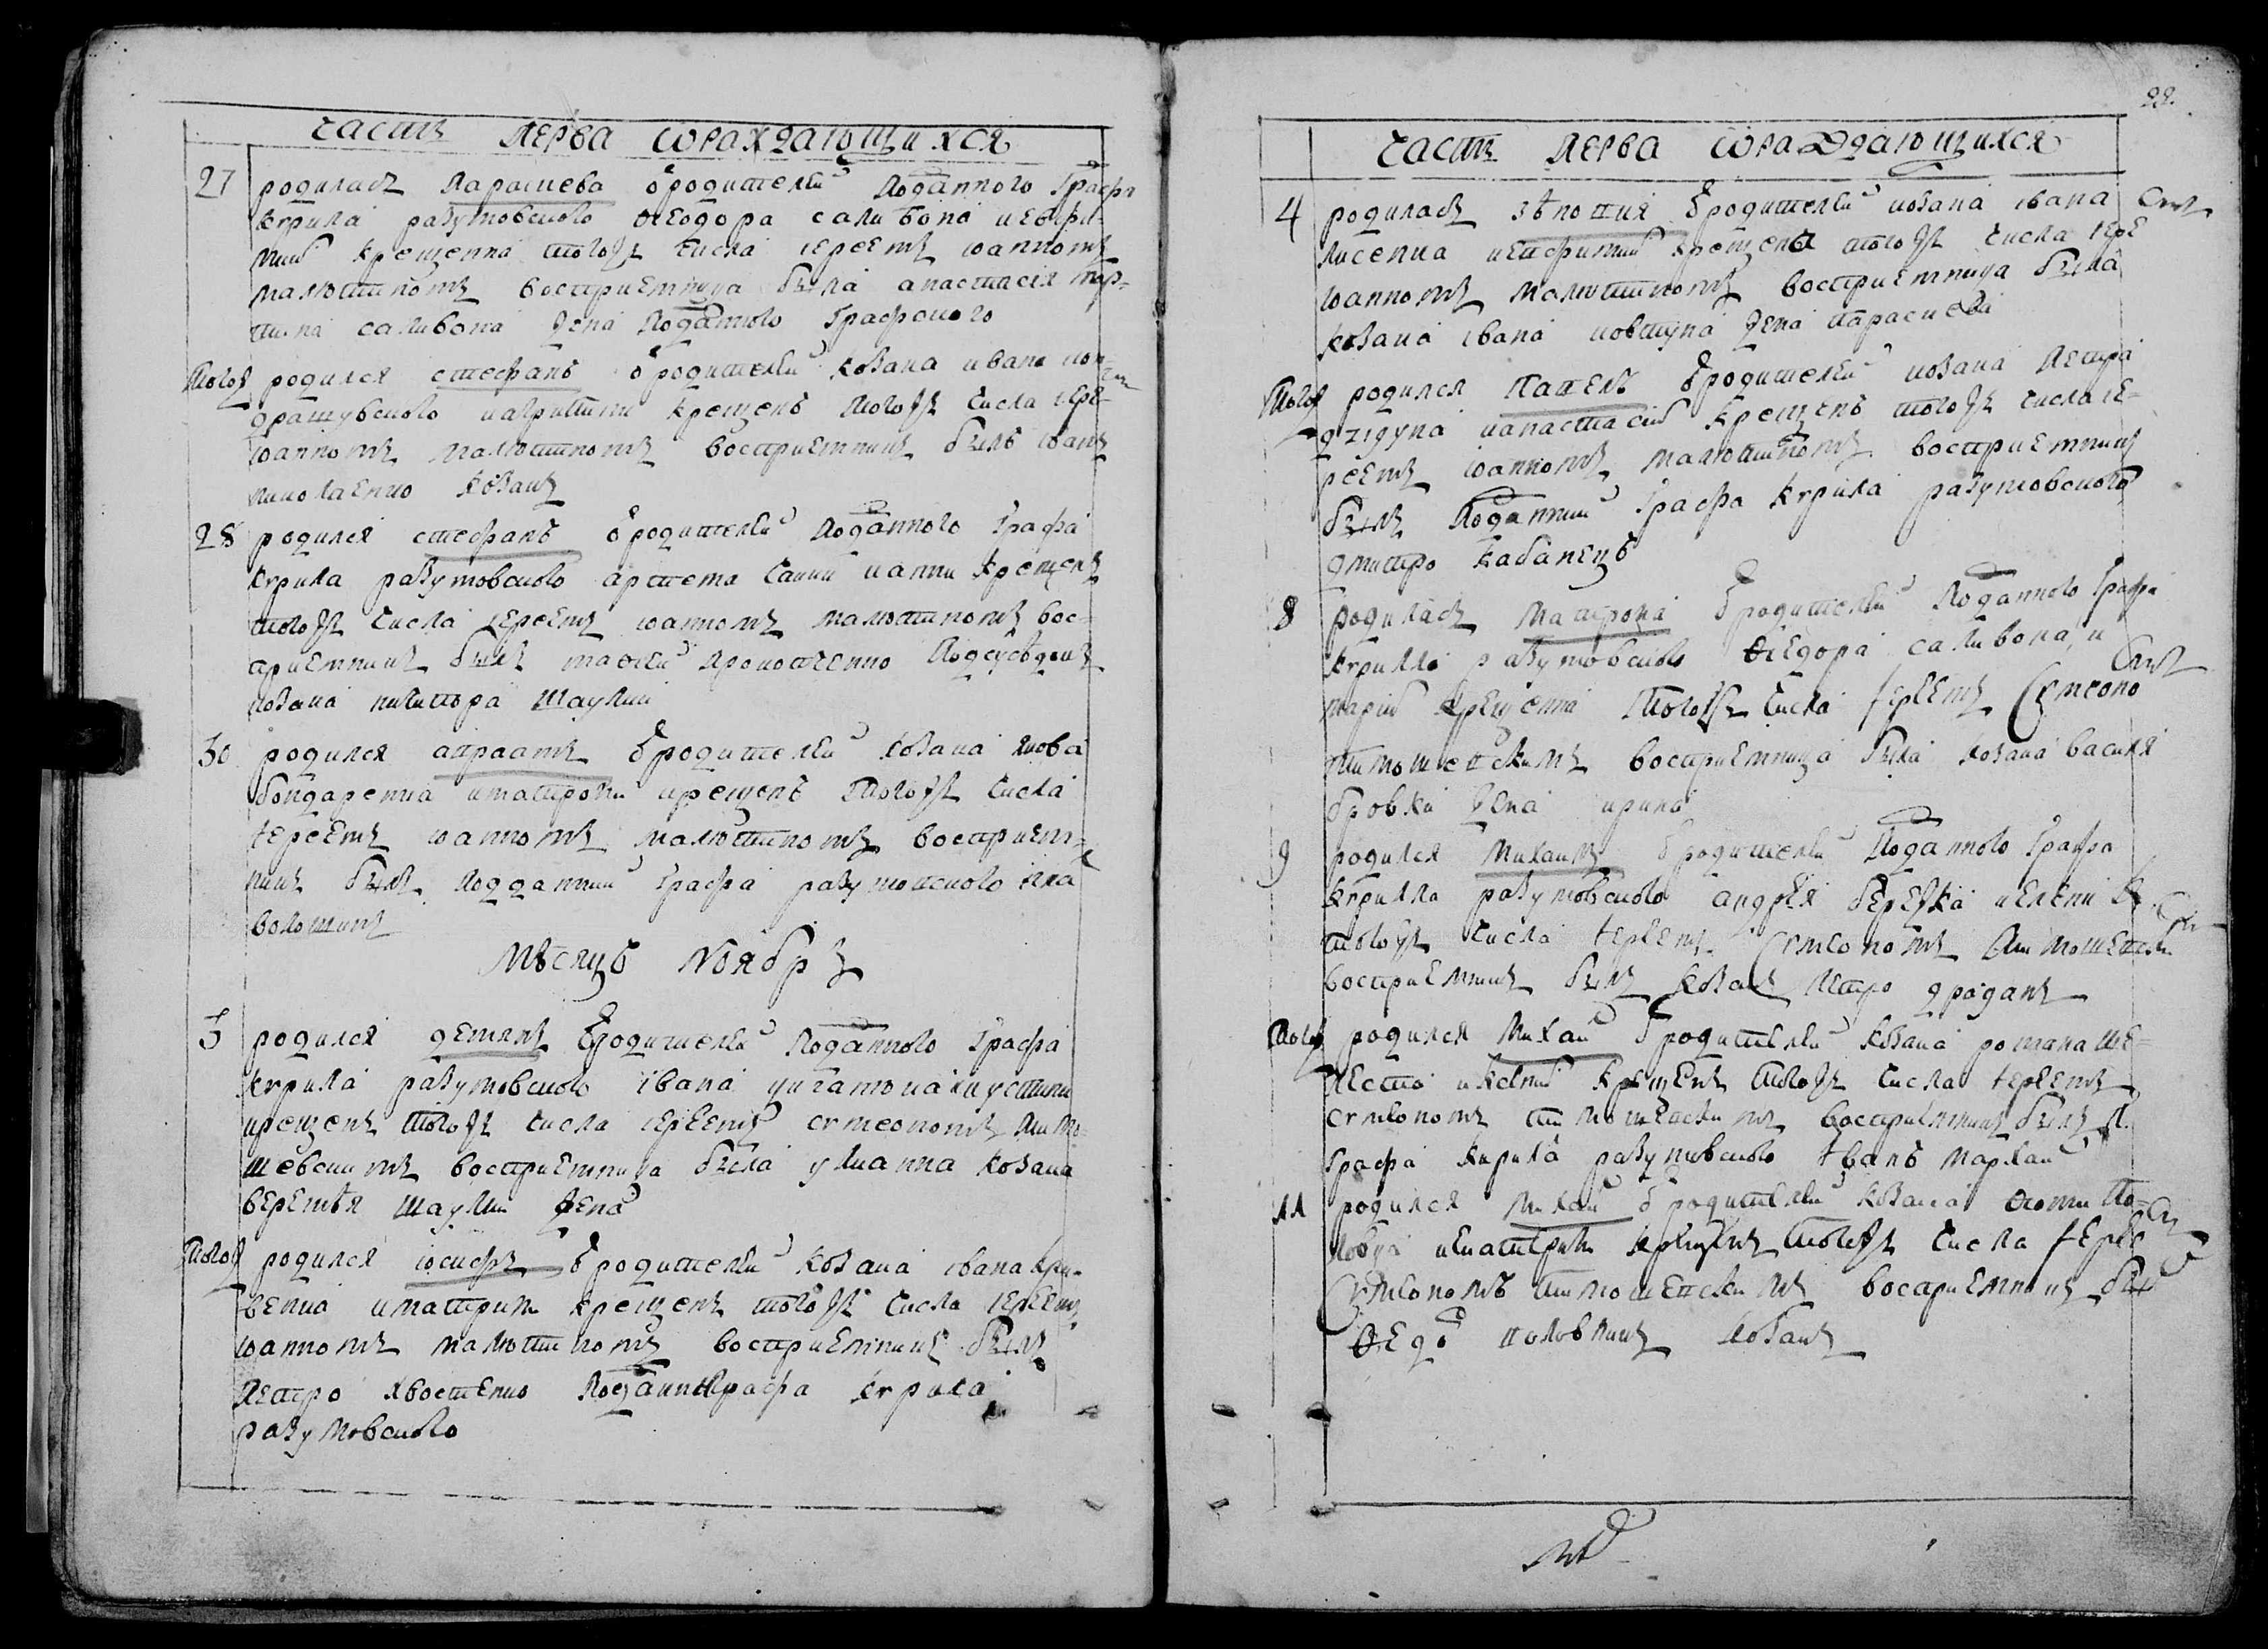 часть перва ѡраждающихся
27 родилась парасцева ѿродителей подданного графа
кѵрила разумовского ѳеодора саливона и евфи-
мии крещенна тогожъ числа иереемъ иоанномъ
малютиномъ восприемница была анастасия мар-
тина саливона жена подданого графского
Тогожъ родился стефанъ ѿродителей козака ивана
крещенъ тогожъ числа иере
иоанномъ малютиномъ восприемникъ былъ иванъ
николаенко козакъ
28 родился стефанъ ѿродителей подданного графа
кѵрила разумовского артема и анни крещенъ
тогожъ числа иереемъ иоанномъ малютиномъ вос-
приемникъ былъ матѳей прокопченко подсусѣдокъ
козака никитора шаулии
30 родился авраамъ ѿродителей козака якова
бондаренка и матрони крещенъ тогожъ числа
иереемъ иоанномъ малютиномъ восприем-
никъ былъ подданний графа разумовского
волошинъ
Мѣсяцъ Ноябръ
3 родился демянъ ѿродителей подданного графа
кѵрила разумовского ивана и иустини
крещенъ тогожъ числа иереемъ сѵмеономъ тимо-
шевскимъ восприемница была улианна козака
веремѣя шаулии жена
Тогожъ родился иосифъ ѿродителей козака ивана кри-
венка и матрини крещенъ тогожъ числа иереемъ
иоанномъ малютиномъ восприемникъ былъ
петро хвостенко подданий графа кѵрила
разумовского
22.
часть перва ѡраждающихся
4 родилась зѣновия ѿродителей козака ивана
лисенка и евфимии крещена тогожъ числа иере
иоанномъ малютиномъ восприемница была
козака ивана ковтуна жена парасцева
Тогожъ родился павелъ ѿродителей козака петра
дзюдуна и анастасии крещенъ тогожъ числа ие-
реемъ иоанномъ малютиномъ восприемникъ
былъ подданний графа кѵрила разумовского
дмитро кабанецъ
8 родилась матрона ѿродителей подданного графа
кѵрилла разумовского ѳеедора саливона и
марии крещенна тогожъ числа иереемъ Сѵмеоно
тимошевскимъ восприемница была козака василя
бровки жена ирина
9 родился михаилъ ѿродителей подданного графа
кѵрилла разумовского андрея бережка и елени
тогожъ числа иереемъ Сѵмеономъ тимошевски
восприемникъ былъ козакъ петро драданъ
Тогожъ родился михай ѿродителей козака романа ше-
песта и ксении крещенъ тогожъ числа иереемъ
сѵмеономъ тимошевскимъ восприемникъ былъ п.
графа кирила разумовского иванъ мархай
11 родился михай ѿродителей козака ѳоми по-
ловка и екатерини крещенъ тогожъ числа иерее
Сѵмеономъ тимошевскимъ восприемникъ бы
ѳедо половкинъ козакъ